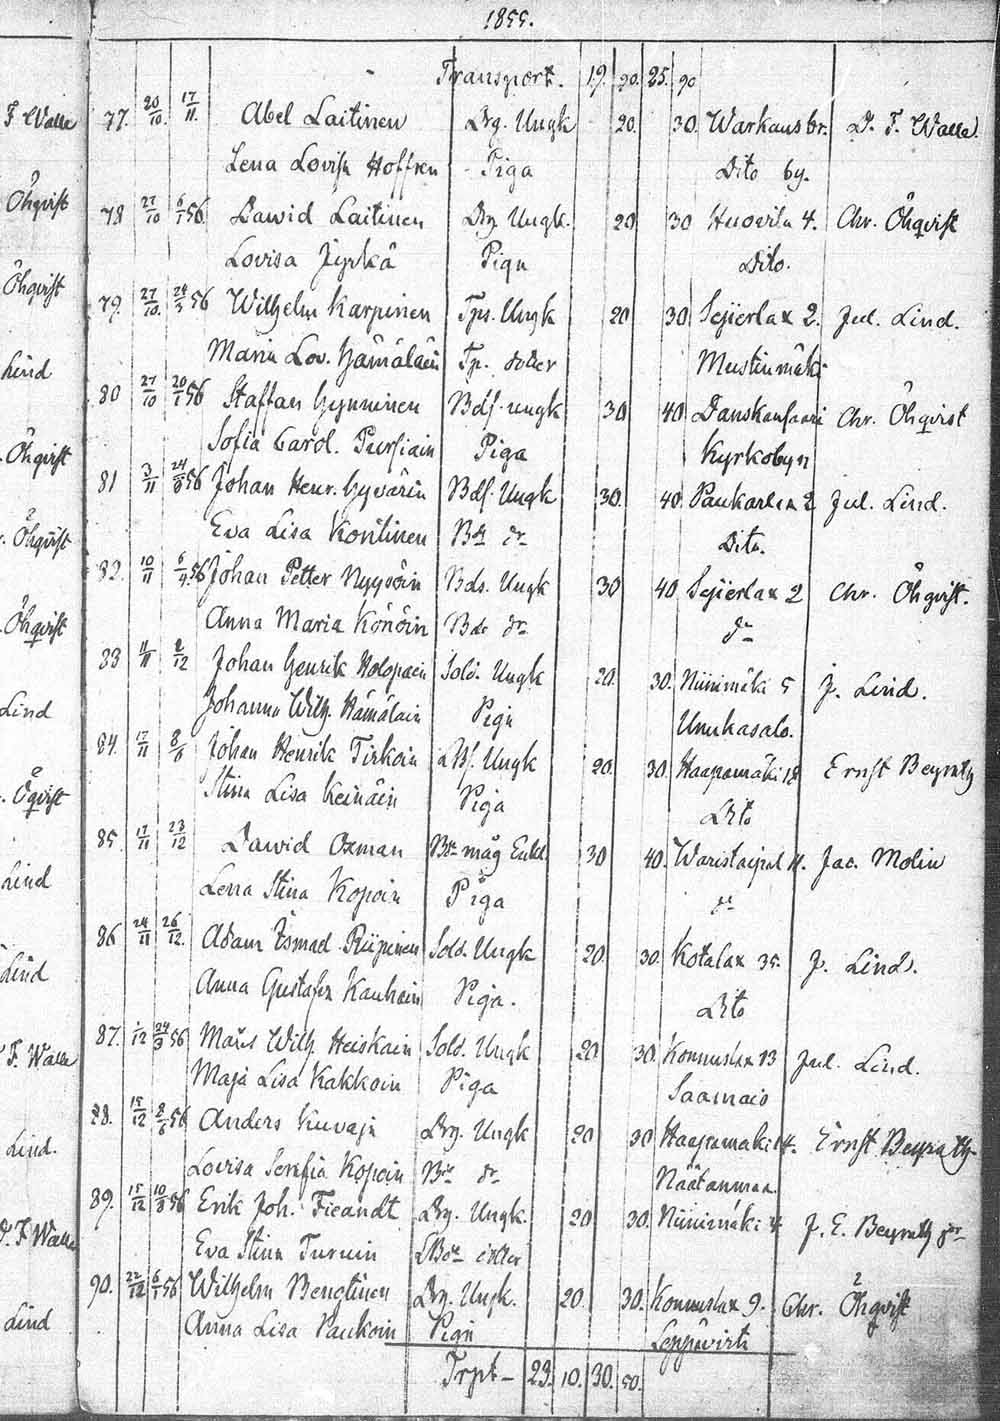 1855.
Transport. 19. 90. 25. 90
F Walle 77. 20/10. 17/11. Abel Laitinen Drg. Ungk 20. 30. Warkaus br. D. F. Walle.
Lena Lovisa Hoffren Piga Dito by.
Öhqvist 78 27/10 6/1 56 Dawid Laitinen Drg. Ungk. 20 30 Huovila 4. Chr. Öhqvist
Lovisa Jyrkä Piga Dito.
Öhqvist 79. 27/10. 24/3 56 Wilhelm Karpinen Tps. Ungk 20 30 Sejierlax 2. Jul. Lind.
Maria Lov. Hämäläin Tp. dotter Mustinmäki
Lind 80 27/10 20/1 56 Staffan Hynninen Bds. ungk 30 40 Danskansaari Chr. Öhqvist
Sofia Carol. Pursiain Piga Kyrkobyn
Öhqvist 81 3/11 24/3 56 Johan Henr. Hyvärin Bds. Ungk 30. 40. Paukarlax 2 Jul. Lind.
Eva Lisa Kontinen Bd dr Dito.
Öhqvist 82. 10/11 6/4 56 Johan Petter Nyyssöin Bds. Ungk 30 40 Sejierlax 2 Chr. Öhqvist.
Anna Maria Könöin Bde dr dr
Öhqvist 83 11/11 2/12 Johan Henrik Holopain Sold. Ungk 20. 30. Niinimäki 5 J. Lind.
Johanna Wilh. Hämälain Piga Unnukasalo.
Lind 84. 17/11 8/6 Johan Henrik Tirkoin LBs. Ungk 20. 30. Haapamäki 18 Ernst Beyrath
Stina Lisa Keinäin Piga Dito
Öqvist 85. 17/11 23/12 Dawid Oxman Bde måg Enkl. 30 40. Waristaipal 11. Jac. Molin
Lena Stina Kopoin Piga dr
Lind 86 24/11 26/12. Adam Esmad Riipinen Sold. Ungk 20. 30. Kotalax 35. J. Lind.
Anna Gustafva Kauhain Piga. Dito
Lind 87. 1/12 24/3 56 Mats Wilh. Heiskain Sold. Ungk 20 30. Konnuslax 13 Jul. Lind.
F. Walle Maja Lisa Kakkoin Piga Saamais
88. 15/12 2/6 56 Anders Kuvaja Drg. Ungk 20 30 Haapamäki 14. Ernst Beyrath
Lind. Lovisa Serafia Kopoin Bde dr Näätänmaa.
89. 15/12 10/8 56 Erik Joh. Fieandt Drg. Ungk. 20 30. Niinimäki 4 J. E. Beyrath jor
D. F Walle Eva Stina Turuin LBde dotter
90. 22/12 6/1 56 Wilhelm Bengtinen Drg. Ungk. 20. 30. Konnuslax 9. Chr. Öhqvist
Lind Anna Lisa Paukoin Piga Leppävirta
Trpt – 23. 10. 30. 50.